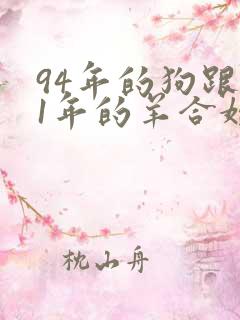 94年的狗跟
1年的羊合
枕山舟